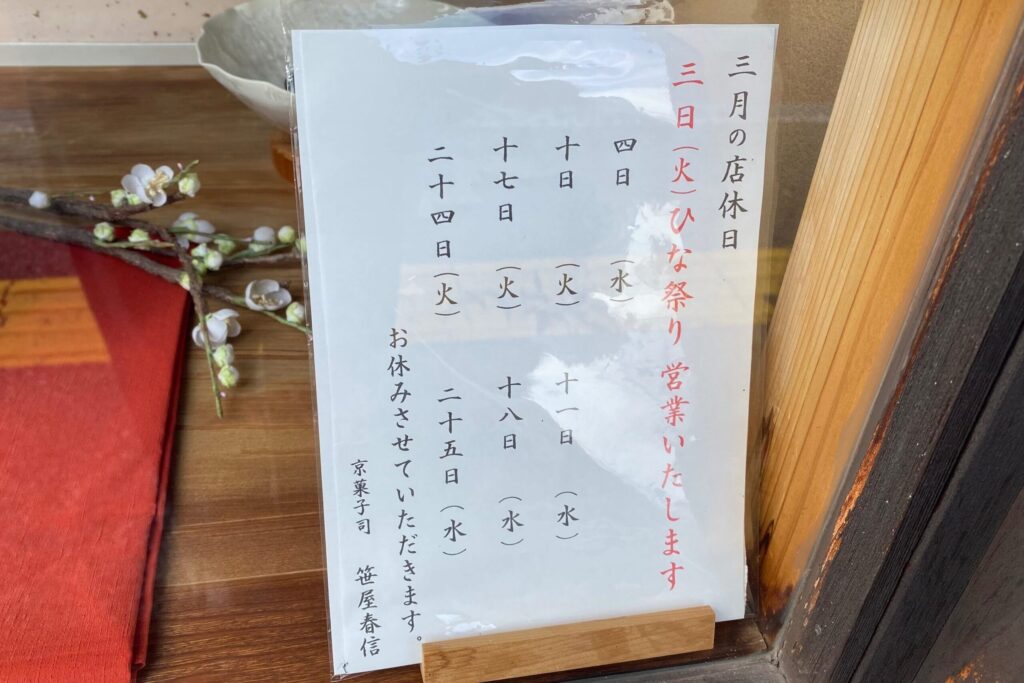 三月の店休日
三日（火）ひな祭り 営業いたします
四日 （水）
十日 （火） 十一日 （水）
十七日 （火） 十八日 （水）
二十四日（火） 二十五日（水）
お休みさせていただきます。
京菓子司 笹屋春信